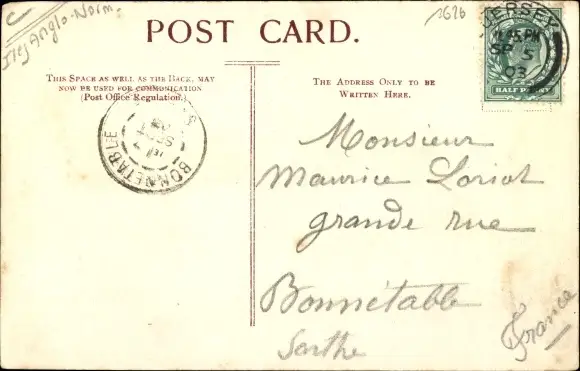 Iles Anglo-Norm.
1626
POST CARD.
THIS SPACE AS WELL AS THE BACK, MAY
NOW BE USED FOR COMMUNICATION
(Post Office Regulation.)
THE ADDRESS ONLY TO BE
WRITTEN HERE.
JERSEY
SP 5
03
HALFPENNY
BONNETABLE
Monsieur
Maurice Loriot
grande rue
Bonnétable
Sarthe
France